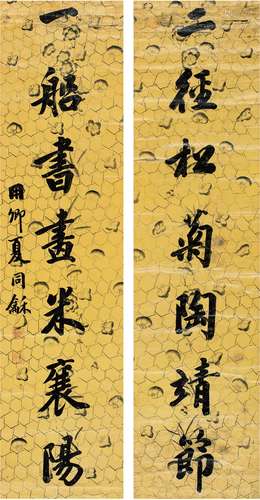 三徑松菊陶靖節
一船書畫米襄陽
用卿夏同龢